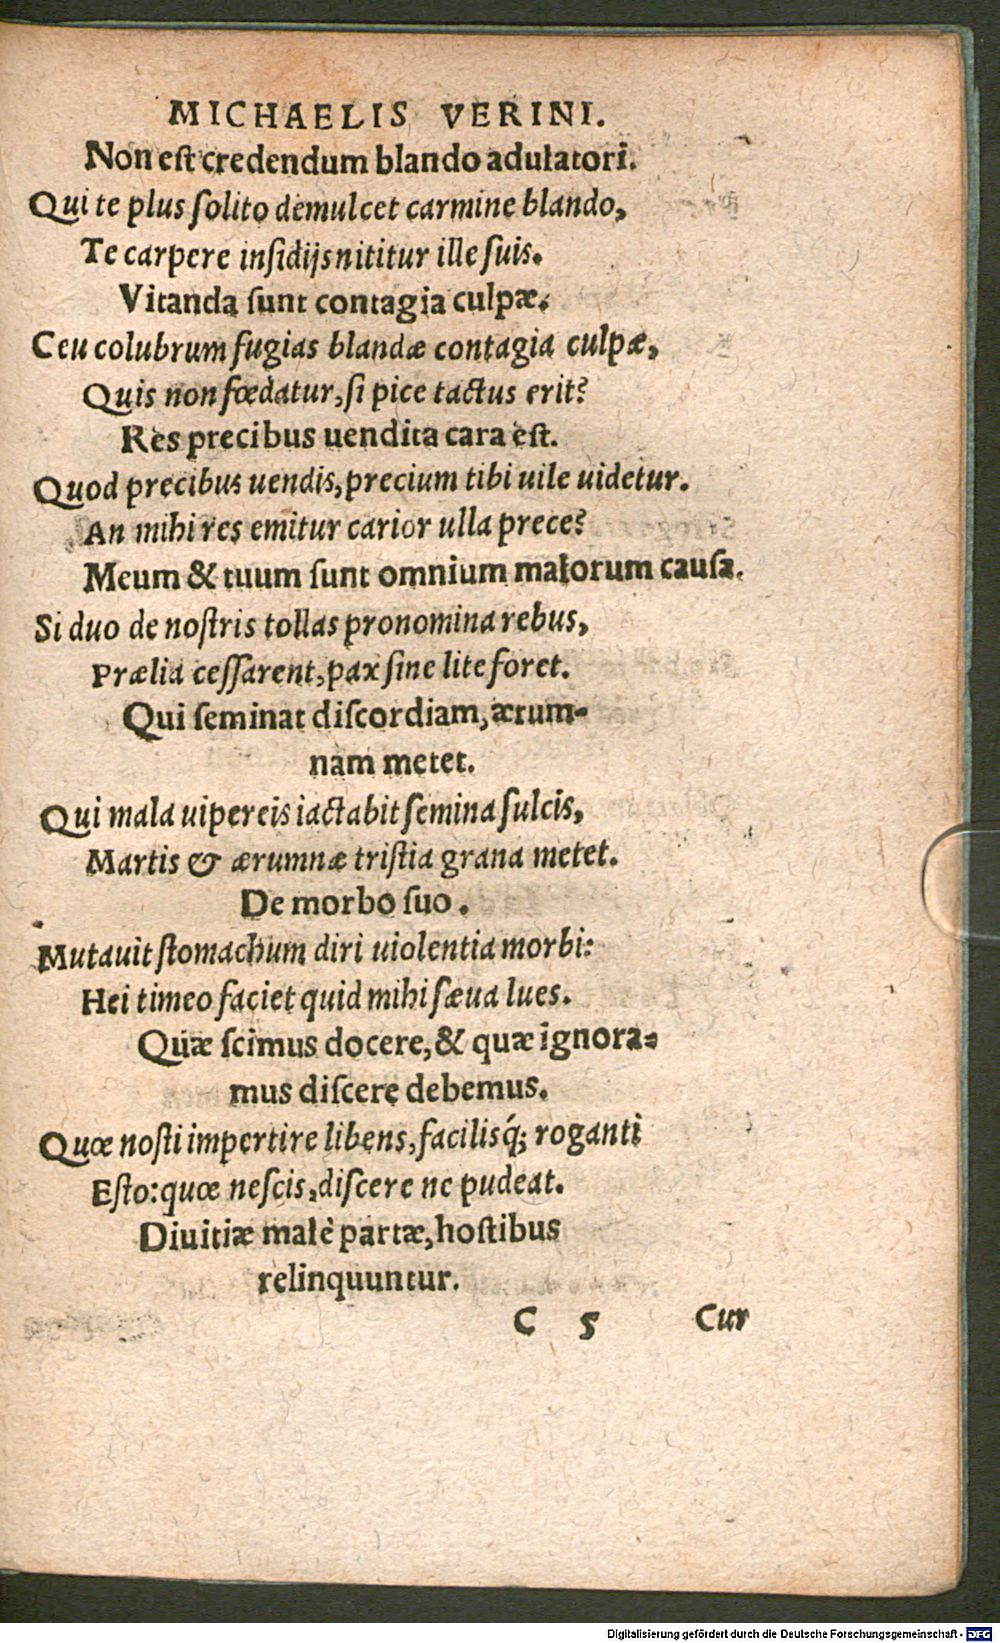 MICHAELIS VERINI.
Non est credendum blando adulatori.
Qui te plus ſolito demulcet carmine blando,
Te carpere inſidijs nititur ille ſuis.
Vitanda ſunt contagia culpæ.
Ceu colubrum fugias blandæ contagia culpæ,
Quis non fœdatur, ſi pice tactus erit?
Res precibus uendita cara eſt.
Quod precibus uendis, precium tibi uile uidetur.
An mihi res emitur carior ulla prece?
Meum & tuum ſunt omnium malorum cauſa.
Si duo de noſtris tollas pronomina rebus,
Prælia ceſſarent, pax ſine lite foret.
Qui ſeminat diſcordiam, ærum-
nam metet.
Qui mala uipereis iactabit ſemina ſulcis,
Martis & ærumnæ triſtia grana metet.
De morbo ſuo.
Mutauit ſtomachum diri uiolentia morbi:
Hei timeo faciet quid mihi ſæua lues.
Quæ ſcimus docere, & quæ ignora-
mus diſcere debemus.
Quæ noſti impertire libens, facilisq́; roganti
Eſto: quæ neſcis, diſcere ne pudeat.
Diuitiæ malè partæ, hoſtibus
relinquuntur.
C 5 Cur
Digitalisierung gefördert durch die Deutsche Forschungsgemeinschaft - DFG